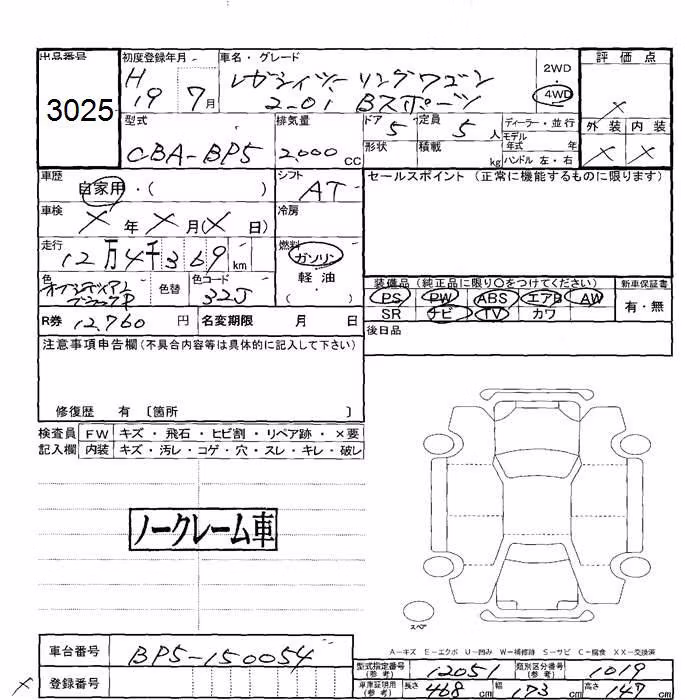 出品番号
3025
初度登録年月
H
19 7月
車名・グレード
レガシィツーリングワゴン
2.0i Bスポーツ
2WD
4WD
評価点
×
外装 内装
× ×
型式
CBA-BP5
排気量
2,000 cc
ドア 5
定員 5 人
形状
積載 kg
ディーラー・並行
モデル
年式 年
ハンドル 左・右
車歴
自家用・( )
シフト
AT
車検
×年×月(×日)
冷房
走行
12万4千369km
燃料
ガソリン
軽・油
( )
色
オブシディアン
ブラックP
色替
色コード
32J
セールスポイント (正常に機能するものに限ります)
装備品 (純正品に限り○をつけてください)
PS PW ABS エアB AW
SR ナビ TV カワ
新車保証書
有・無
後日品
R券 12,760 円
名変期限 月 日
注意事項申告欄(不具合内容等は具体的に記入して下さい)
修復歴 有 〔箇所 〕
検査員
記入欄
FW キズ・飛石・ヒビ割・リペア跡・×要
内装 キズ・汚レ・コゲ・穴・スレ・キレ・破レ
ノークレーム車
スペア
A-キズ E-エクボ U-凹み W-補修跡 S-サビ C-腐食 XX-交換済
車台番号 BP5-150054
登録番号
×
型式指定番号
(参考)
12051
類別区分番号
(参考)
1019
車庫証明用
(参考)
長さ 468 cm
幅 173 cm
高さ 147 cm